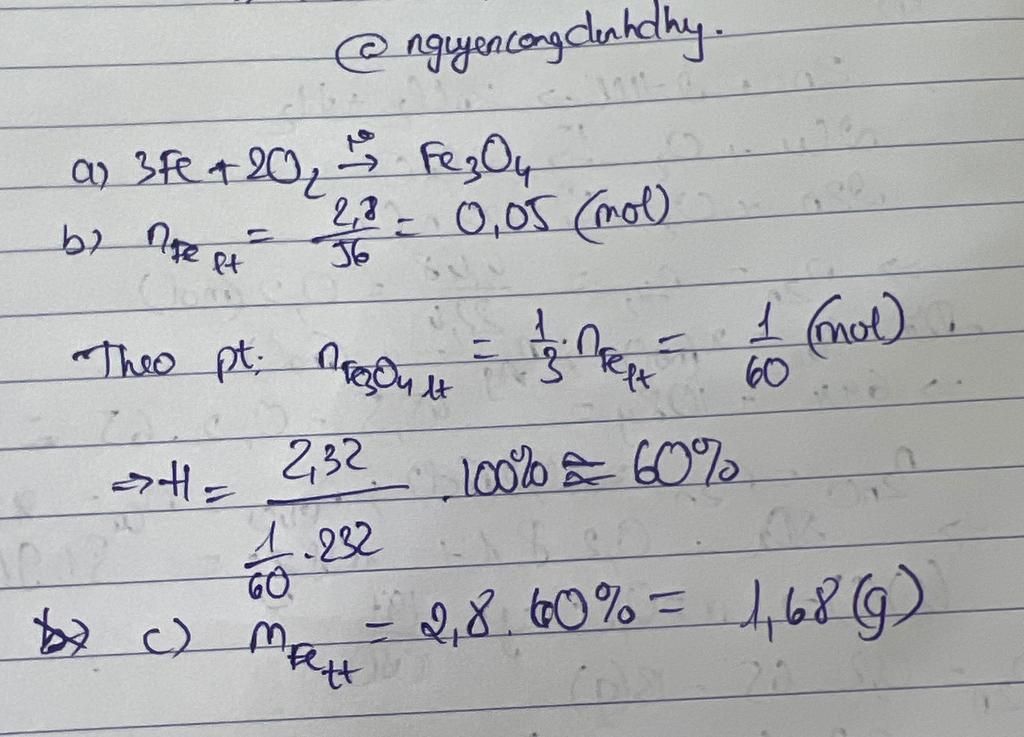 @ nguyencongduhdhy.
a) 3Fe + 2O₂ →(t°) Fe₃O₄
b) n_Fe pt = 2,8/56 = 0,05 (mol)
Theo pt: n_Fe₃O₄ lt = 1/3 . n_Fe pt = 1/60 (mol).
⇒ H = 2,32 / (1/60 . 232) . 100% ≈ 60%
c) m_Fe tt = 2,8 . 60% = 1,68 (g)